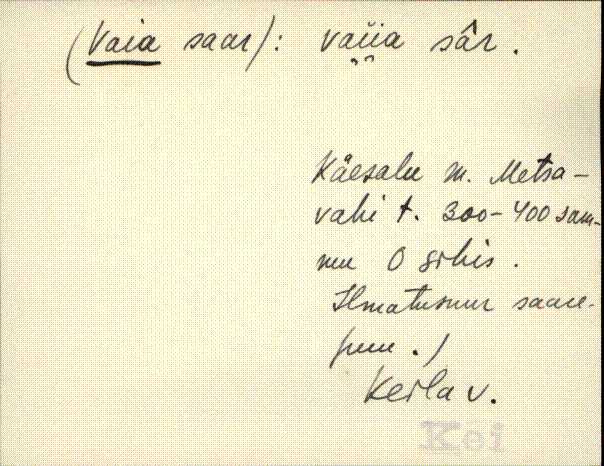 (Vaia saar): vaiia sâr.
Käesalu m. Metsa-
vahi t. 300-400 sam-
mu O sihis.
Ilmatusuur saare-
puu.)
Keila v.
Kei